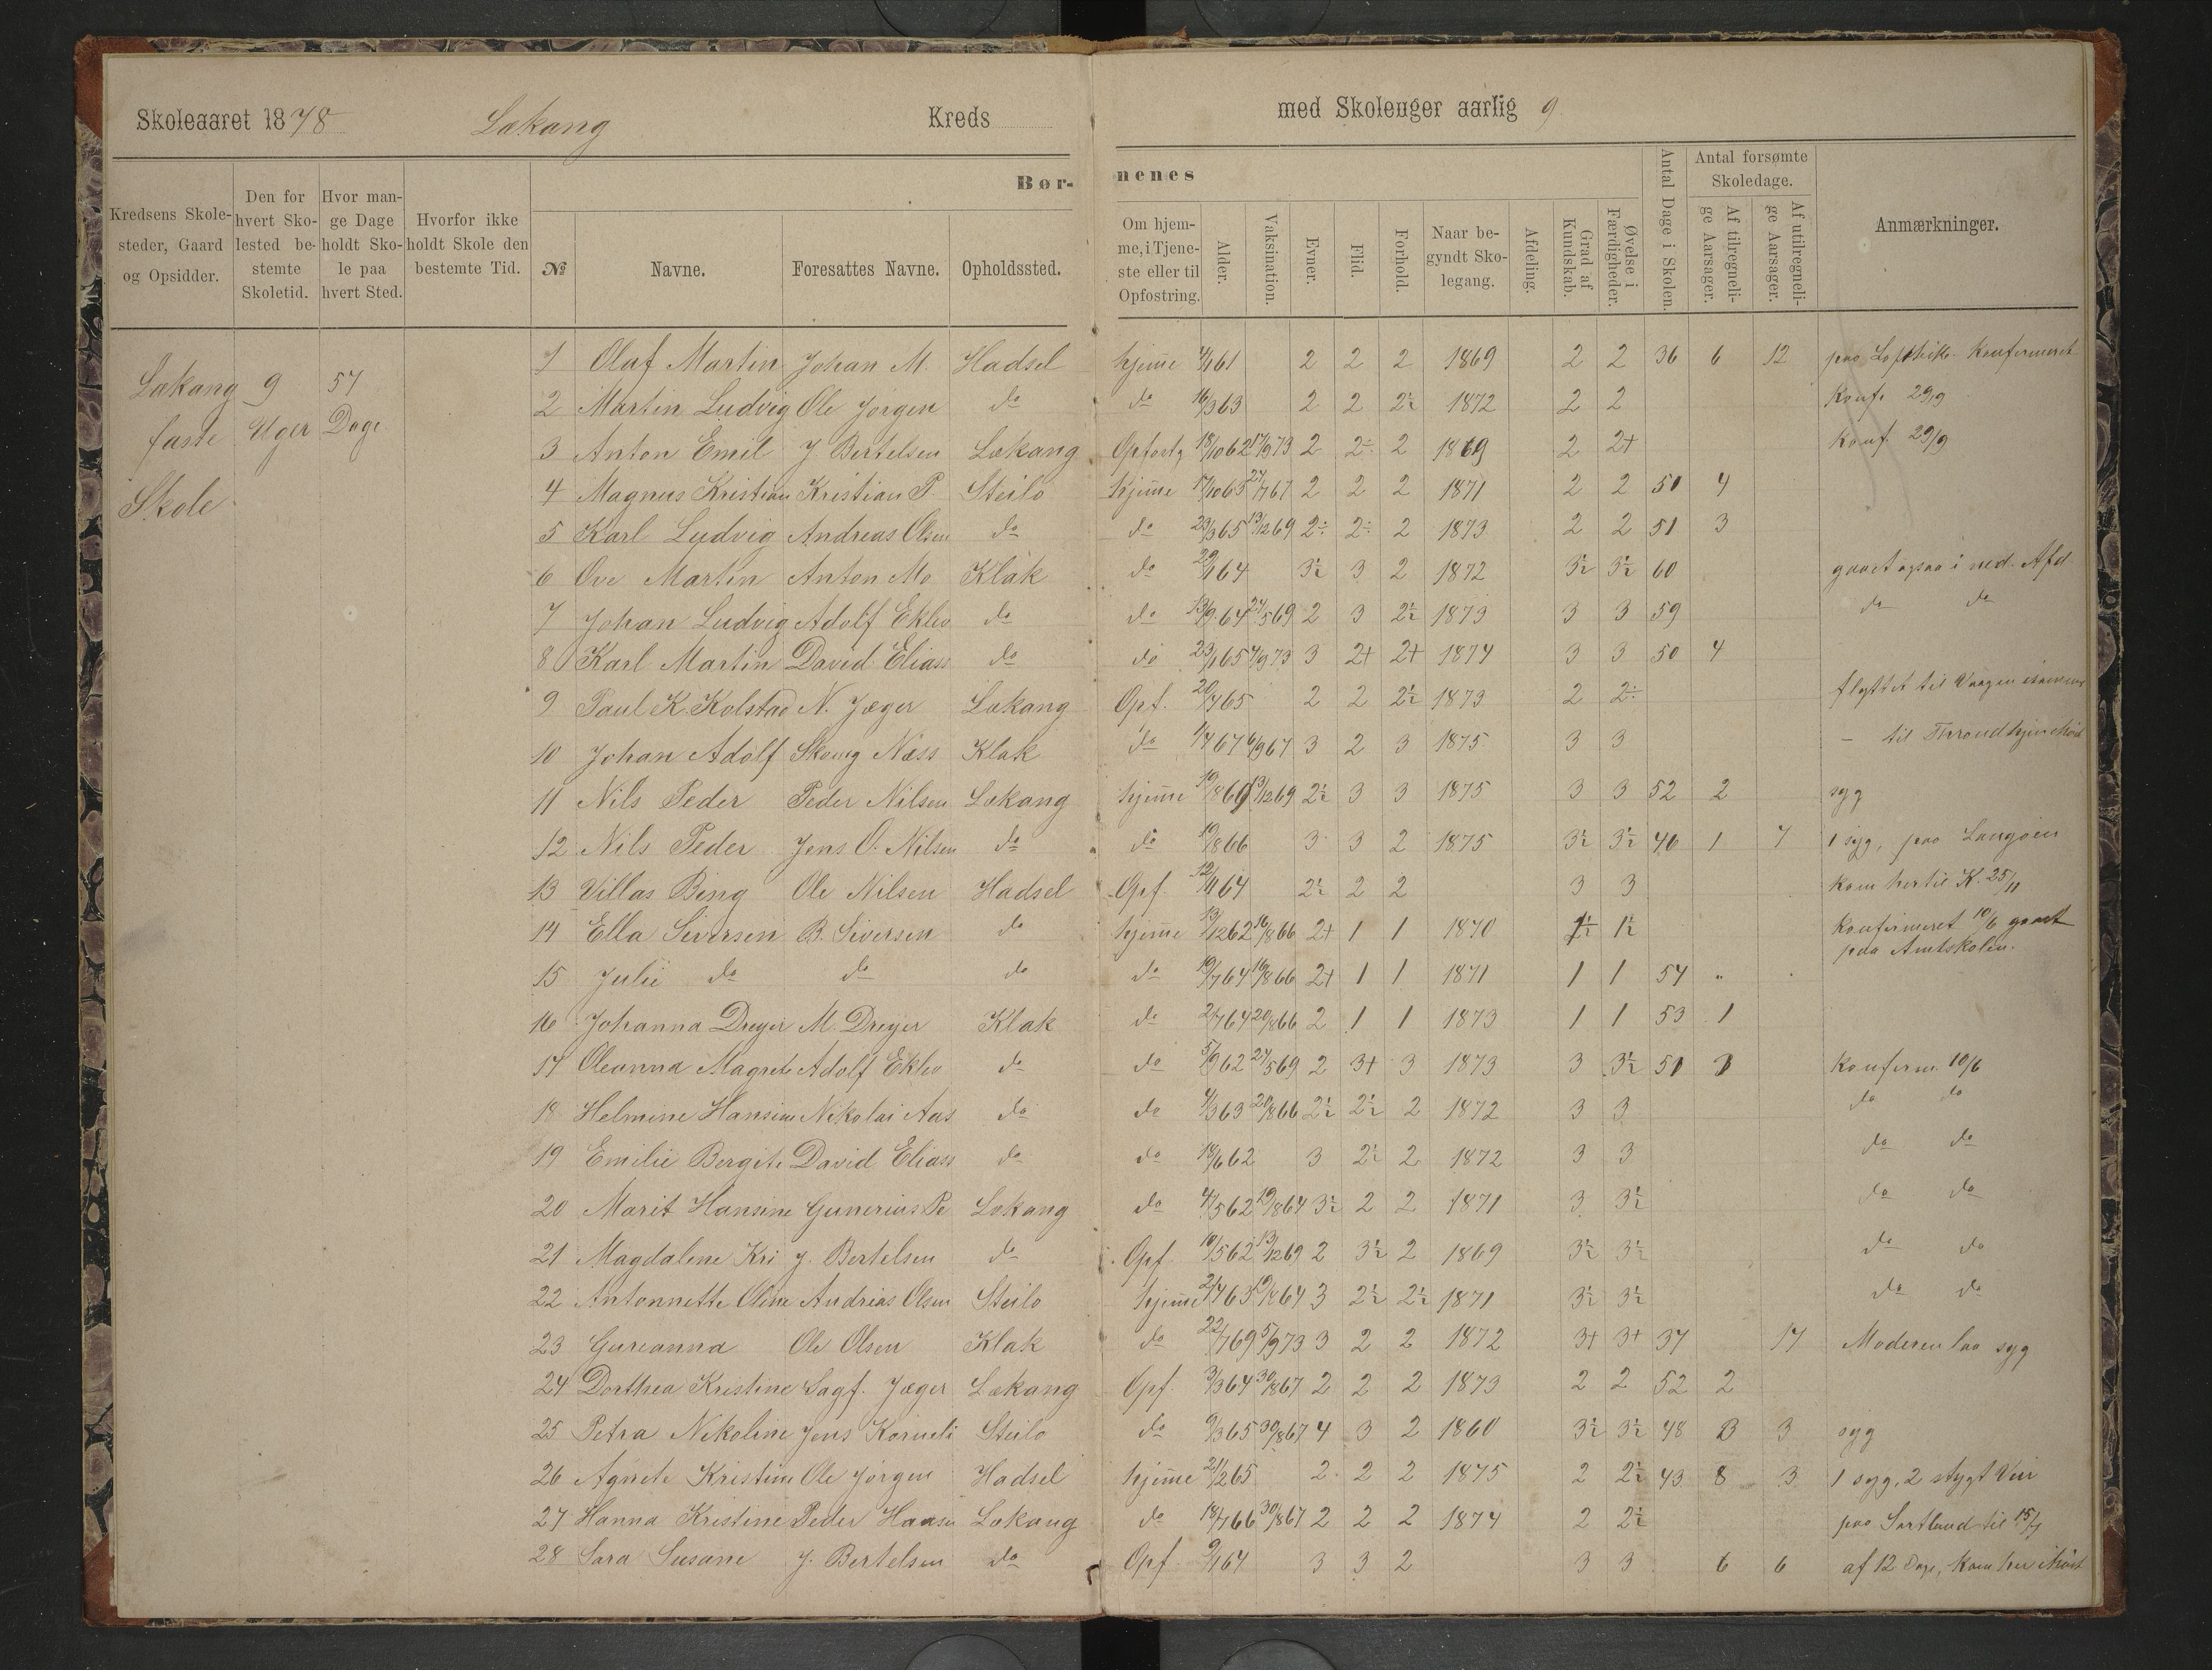 Skoleaaret 1878 Lækang Kreds
med Skoleuger aarlig 9
Kredsens Skolesteder, Gaard og Opsidder.
Den for hvert Skolested bestemte Skoletid.
Hvor mange Dage holdt Skole paa hvert Sted.
Hvorfor ikke holdt Skole den bestemte Tid.
Børnenes
№
Navne.
Foresattes Navne.
Opholdssted.
Om hjemme, i Tjeneste eller til Opfostring.
Alder.
Vaksination.
Evner.
Flid.
Forhold.
Naar begyndt Skolegang.
Afdeling.
Grad af Kundskab.
Øvelse i Færdigheder.
Antal Dage i Skolen.
Antal forsømte Skoledage.
Af tilregnelige Aarsager.
Af utilregnelige Aarsager.
Anmærkninger.
Lækang 9 57
faste Uger Dage
Skole
1 Olaf Martin Johan M. Hadsel hjeme 4/161 2 2 2 1869 2 2 36 6 12 Konfirmeret
2 Martin Ludvig Ole Jørgen do do 16/363 2 2 2½ 1872 2 2 Konf. 29/9
3 Anton Emil J. Bertelsen Lækang Opfostg 18/1062 17/973 2 2÷ 2 1869 2 2+ Konf. 29/9
4 Magnus Kristian Kristian P Steilo hjeme 17/1065 27/767 2 2 2 1871 2 2 50 4
5 Karl Ludvig Andreas Olsen do do 23/365 13/1269 2÷ 2÷ 2 1873 2 2 51 3
6 Ove Martin Anton Mo Klak do 29/164 3½ 3 2 1872 3½ 3½ 60 gaaet ogsaa i ned. Afd
7 Johan Ludvig Adolf Eklo do do 13/964 27/569 2 3 2½ 1873 3 3 59 do do
8 Karl Martin David Eliass do do 23/165 4/973 3 2+ 2+ 1874 3 3 50 4
9 Paul K. Kolstad N. Jæger Lækang Opf. 20/465 2 2 2½ 1873 2 2÷ flyttet til Vaagen
10 Johan Adolf Skoug Næss Klak do 1/467 6/967 3 2 3 1875 3 3 – til Throndhjem
11 Nils Peder Peder Nilsen Lækang hjeme 19/866 13/1269 2½ 3 3 1875 3 3 52 2 syg
12 Nils Peder Jens O. Nilsen do do 19/866 3 3 2 1875 3½ 3½ 46 1 7 1 syg, paa Langøen
13 Villas Bing Ole Nilsen Hadsel Opf. 12/1164 2½ 2 2 3 3 kom hertil K. 25/11
14 Ella Siversen B. Siversen do hjeme 13/1262 16/866 2+ 1 1 1870 1½ 1½ Konfirmeret 10/6 gaaet
paa Amtskolen.
15 Julie do do do do 19/764 16/866 2+ 1 1 1871 1 1 54 "
16 Johanna Dreyer M. Dreyer Klak do 2/764 20/866 2 1 1 1873 1 1 53 1
17 Oleanna Magrete Adolf Eklo do do 5/962 27/569 2 3+ 3 1873 3 3½ 51 3 Konfirm. 10/6
18 Helmine Hansine Nikolai Aas do do 4/363 20/866 2½ 2½ 2 1872 3 3 do do
19 Emilie Bergite David Eliass do do 18/662 3 2½ 2 1872 3 3 do do
20 Marit Hansine Gunerius Pe Lækang do 4/562 19/864 3½ 2 2 1871 3 3½ do do
21 Magdalene Kri J. Bertelsen do Opf. 10/562 13/1269 2 3½ 2 1869 3½ 3½ do do
22 Antonnette Oline Andreas Olsen Steilo hjeme 21/463 19/864 3 2½ 2½ 1871 3½ 3½ do do
23 Gureanna Ole Olsen Klak do 22/769 5/973 3 2 2 1872 3+ 3+ 37 17 Moderen laa syg
24 Dorthea Kristine Sagf. Jæger Lækang Opf. 3/364 30/867 2 2 2 1873 2 2 52 2
25 Petra Nikoline Jens Korneli Steilo do 9/365 30/867 4 3 2 1860 3½ 3½ 48 3 3 syg
26 Agnete Kristine Ole Jørgen Hadsel hjeme 21/265 2 2 2 1875 2 2½ 43 8 3 1 syg, 2 stygt Veir
27 Hanna Kristine Peder Haasen Lækang do 18/766 30/867 2 2 2 1874 2 2½ paa Sortland til 15/7
28 Sara Susane J. Bertelsen do Opf. 9/164 3 3 2 3 3 6 6 af 12 Dage, kom her i Høst